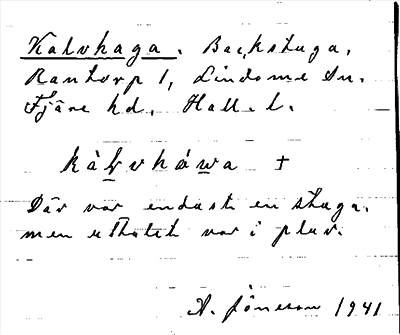 Kalvhaga. Backstuga,
Rantorp 1, Lindome sn.
Fjäre hd. Hall. l.
kàlvháwa +
Där var endast en stuga.
men uttalet var i plur.
A. Jönsson 1941